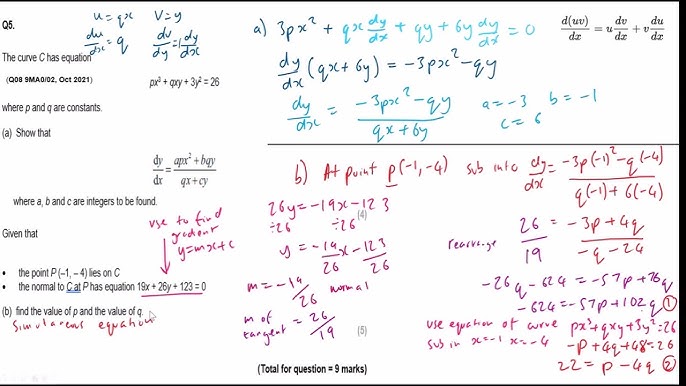 Q5.
u = qx   v = y
du/dx = q   dv/dy = 1 dy/dx
The curve C has equation
(Q08 9MA0/02, Oct 2021)
px³ + qxy + 3y² = 26
where p and q are constants.
(a) Show that
dy/dx = (apx² + bqy)/(qx + cy)
where a, b and c are integers to be found.
(4)
Given that
use to find
gradient
y=mx+c
• the point P (–1, –4) lies on C
• the normal to C at P has equation 19x + 26y + 123 = 0
(b) find the value of p and the value of q.
(5)
Simultaneous equation
(Total for question = 9 marks)
a) 3px² + qx dy/dx + qy + 6y dy/dx = 0
d(uv)/dx = u dv/dx + v du/dx
dy/dx (qx + 6y) = -3px² - qy
dy/dx = (-3px² - qy)/(qx + 6y)   a = -3   b = -1
c = 6
b) At point p(-1, -4)   sub into dy/dx = (-3p(-1)² - q(-4))/(q(-1) + 6(-4))
26y = -19x - 123
÷26   ÷26
y = -19x/26 - 123/26
m = -19/26 normal
m of tangent = 26/19
26/19 = (-3p + 4q)/(-q - 24)
rearrange
-26q - 624 = -57p + 76q
-624 = -57p + 102q ①
use equation of curve px³ + qxy + 3y² = 26
sub in x = -1 x = -4   -p + 4q + 48 = 26
22 = p - 4q ②